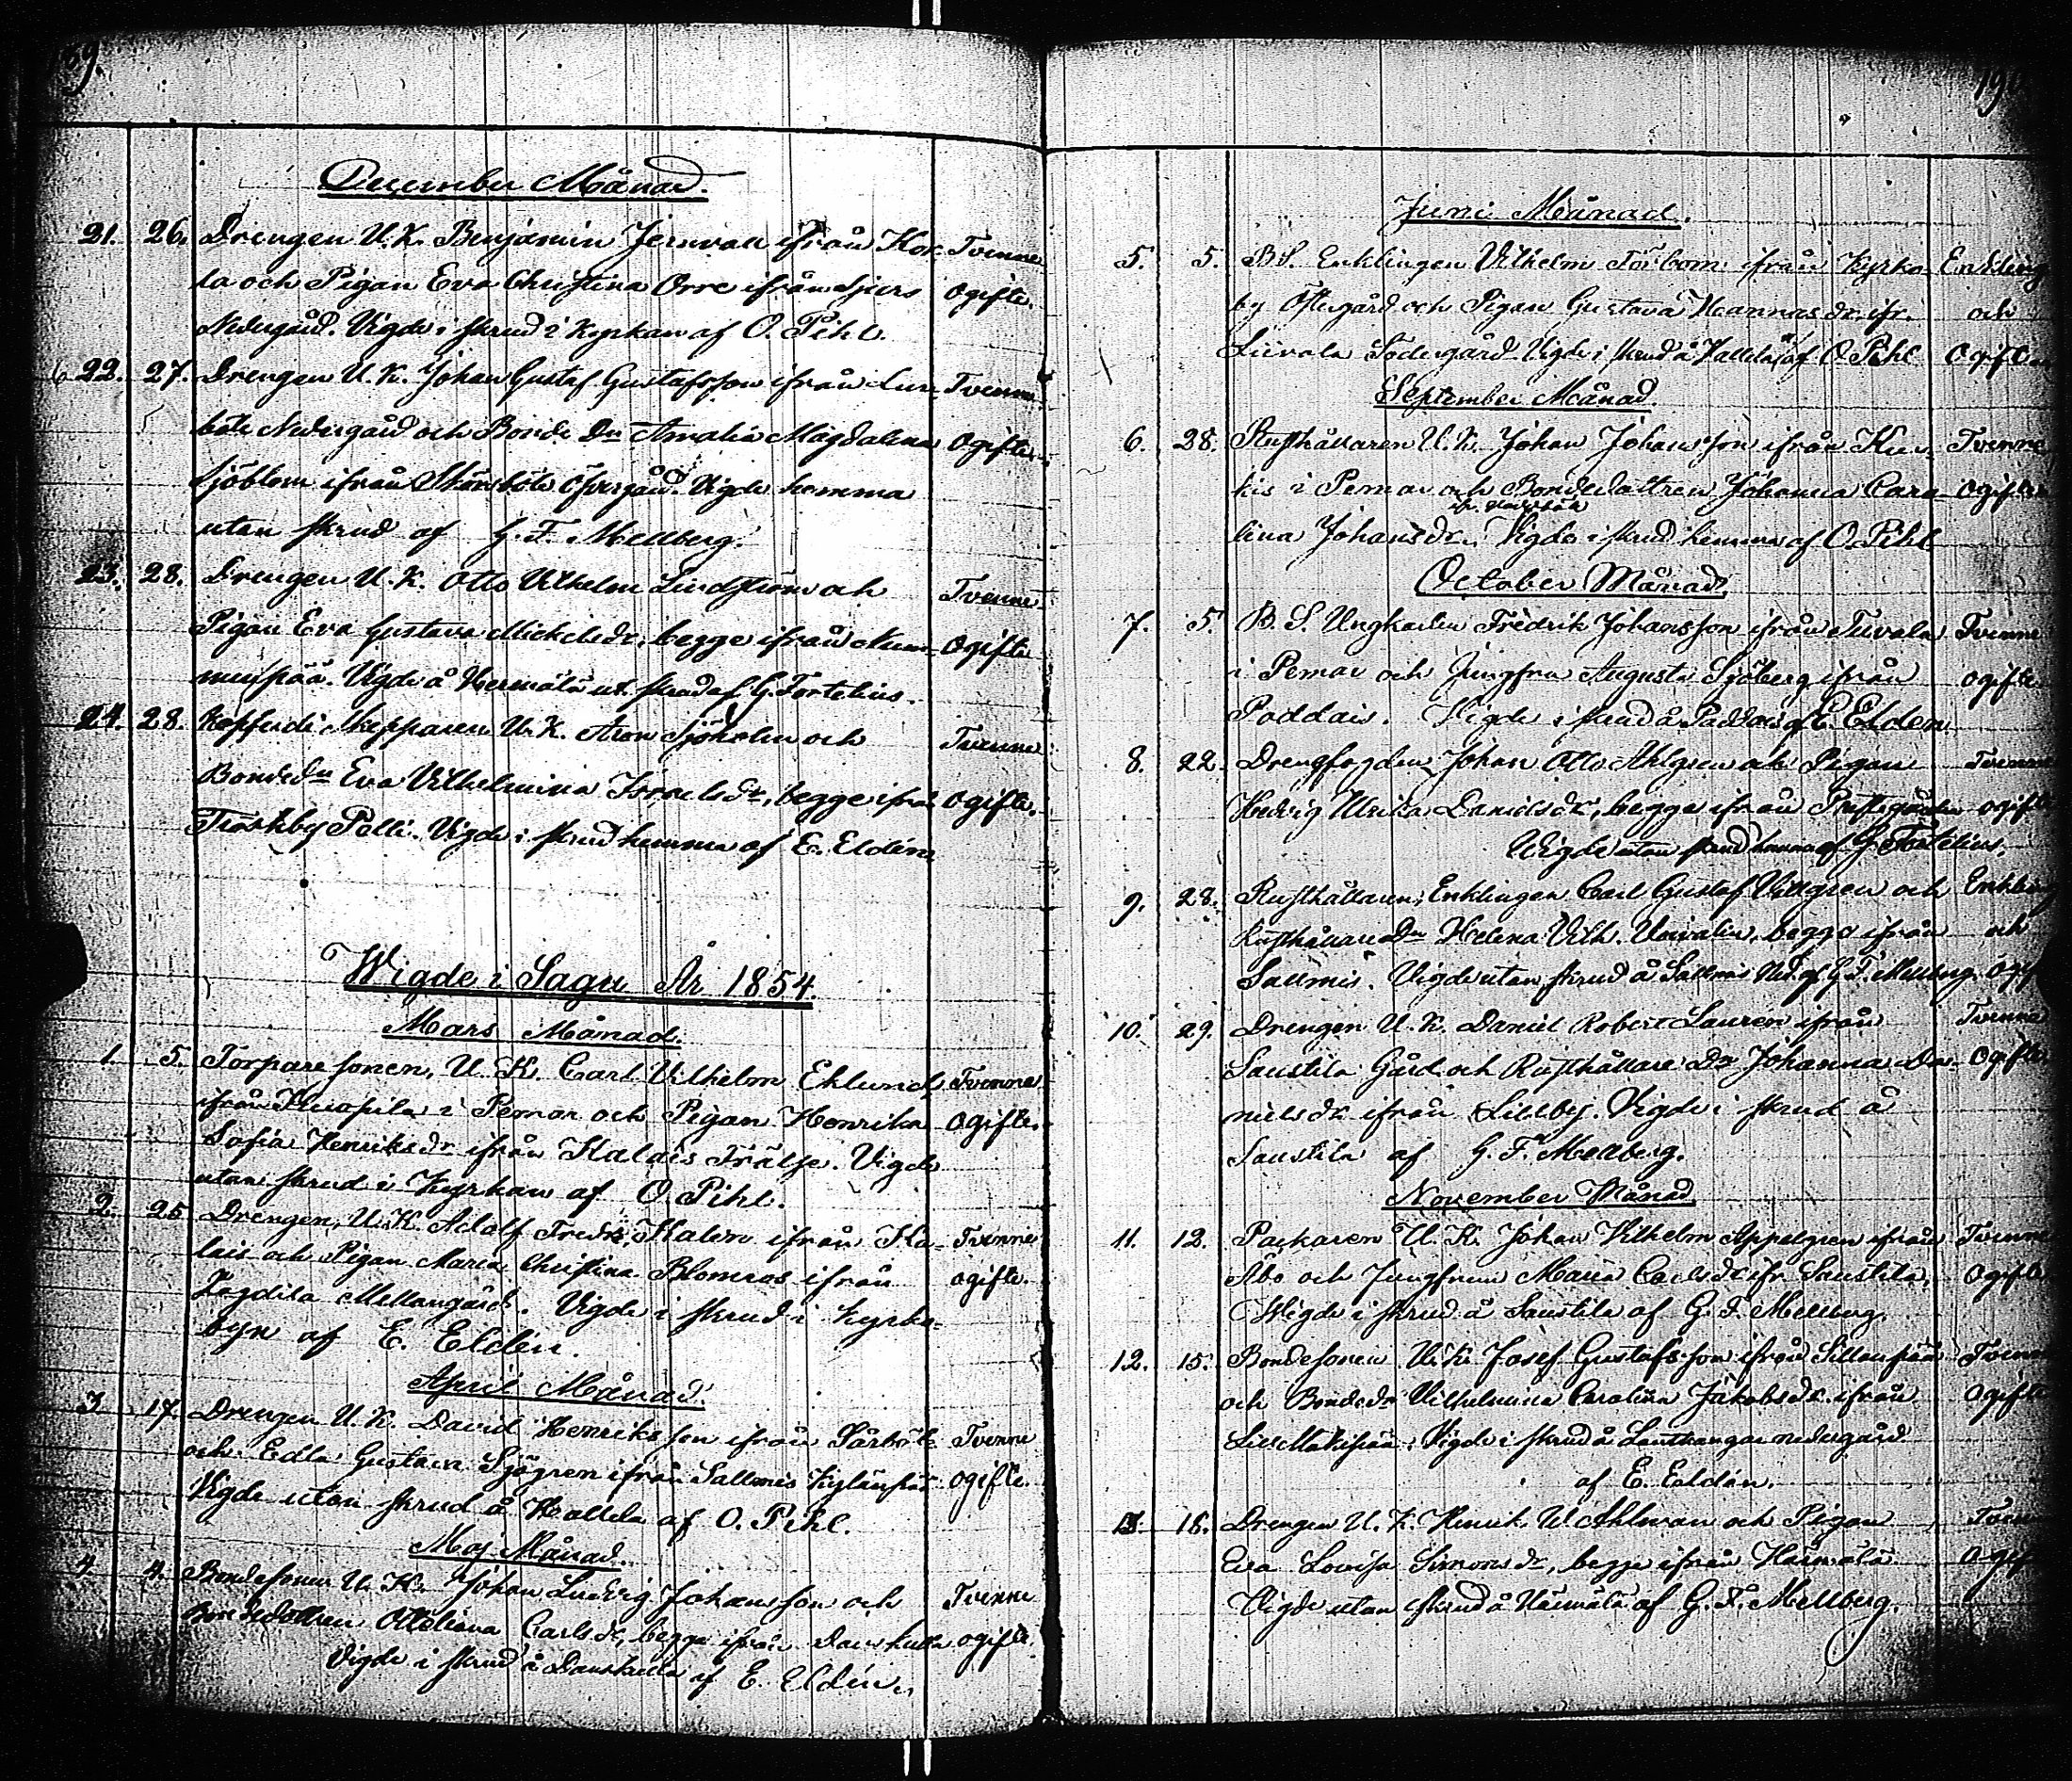 December Månad.
21. 26. Drengen U. K. Benjamin Jernvall ifrån Kor- Tvenne
la och Pigan Eva Christina Orre ifrån Sjurs ogifte.
Nedergård. Vigde i skrud i Kyrkan af O. Pihl.
22. 27. Drengen U. K. Johan Gustaf Gustafsson ifrån Tvenne
böle Nedergård och Bonde Dn Amalia Magdalena Ogifte.
Sjöblom ifrån Öfvergård. Vigde hemma
utan skrud af G. F. Mellberg.
23. 28. Drengen U. K. Otto Vilhelm Lindström och Tvenne
Pigan Eva Gustava Mickelsdr, begge ifrån Num- Ogifte
minpää. Vigde å ut. skrud af G. Fortelius.
24. 28. Skepparen U. K. Aron Sjöholm och Tvenne
Bondedn Eva Vilhelmina Israelsdr, begge ifrån Ogifte.
Träskby Pelli. Vigde i skrud hemma af E. Eldén.
Wigde i Sagu År 1854.
Mars Månad.
1. 5. Torpare sonen, U. K. Carl Vilhelm Eklund, Tvenne
ifrån i Pemar och Pigan Henrika Ogifte.
Sofia Henriksdr ifrån Kalais Frälse. Vigde
utan skrud i Kyrkan af O. Pihl.
2. 25 Drengen, U. K. Adolf Fredr. Kalen ifrån Ka- Tvenne
lais och Pigan Maria Christina Blomros ifrån ogifte.
Mellangård. Vigde i skrud i Kyrko-
byn af E. Eldén.
April Månad.
3 17. Drengen U. K. David Henriksson ifrån Särböle Tvenne
och Edla Gustava Sjögren ifrån Sallmis Kylänpää ogifte.
Vigde utan skrud å Hallela af O. Pihl.
Maj Månad.
4. 4. Bondesonen U. K. Johan Ludvig Johansson och Tvenne
Bondedottren Ottiliana Carlsdr, begge ifrån Danskulla ogifte.
Vigde i skrud å Danskulla af E. Eldén.
Juni Månad.
5. 5. B. S. Enklingen Vilhelm Törblom ifrån Kyrko- Enkling
by Östergård och Pigan Gustava Hannasdr. ifr. och
Liivala Södergård. Vigde i skrud å Hallela af O. Pihl Ogift
September Månad.
6. 28. Rusthållaren U. K. Johan Johansson ifrån Tvenne
kis i Pemar och Bondedottren Johanna Caro- ogifte
lina Johansdr. Vigde i skrud hemma af O. Pihl
October Månad.
7. 5. B. S. Ungkarlen Fredrik Johansson ifrån Tuvala Tvenne
i Pemar och Jungfru Augusta Sjöberg ifrån ogifte
Paddais. Vigde i skrud å Paddais af E. Eldén
8. 22. Drengfogden Johan Otto Ahlgren och Pigan Tvenne
Hedvig Ulrika Danielsdr, begge ifrån Prestgården ogifte
Wigde utan skrud hemma af G. Fortelius.
9. 28. Rusthållaren, Enklingen Carl Gustaf Villgren och Enkling
Rusthållare Dn Helena Vilh. begge ifrån och
Sallmis. Vigde utan skrud å Sallmis Ned. af G. F. Mellberg. Ogift
10. 29. Drengen U. K. Daniel Robert Laurén ifrån Tvenne
Saustila Gård och Rusthållare Dn Johanna Da- ogifte.
nielsdr ifrån Lillby. Vigde i skrud å
Saustila af G. F. Mellberg.
November Månad
11. 12. Packaren U. K. Johan Vilhelm Appelgren ifrån Tvenne
Åbo och Jungfrun Maria Carlsdr ifr Saustila. Ogifte
Wigde i skrud å Saustila af G. F. Mellberg.
12. 15. Bondesonen U. K. Josef Gustafsson ifrån Sillanpää Tvenne
och Bondedn Vilhelmina Carolina Jakobsdr. ifrån Ogifte
Lill. Vigde i skrud å Lautkangas nedergård
af E. Eldén.
13. 18. Drengen U. K. Henrik W. Ahlman och Pigan Tvenne
Eva Lovisa Simonsdr, begge ifrån Härmälä Ogifte
Vigde utan skrud å Härmälä af G. F. Mellberg.